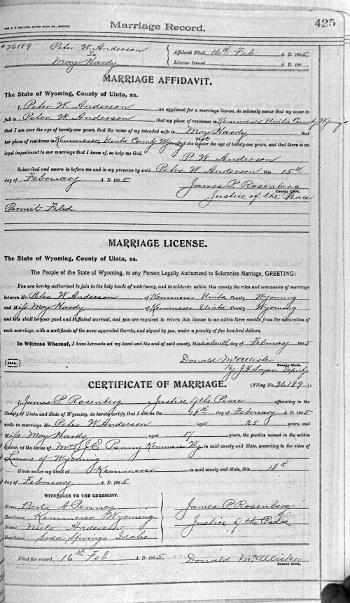 Marriage Record.
425
#26189
Peter W. Anderson
to
May Hardy
Affidavit Filed 16th Feb A. D. 1905
License Issued A. D. 190
MARRIAGE AFFIDAVIT.
The State of Wyoming, County of Uinta, ss.
I, Peter W. Anderson an applicant for a marriage license, do solemnly swear that my name in
full is Peter W. Anderson, that my place of residence is Kemmerer Uinta County Wyoming
that I am over the age of twenty-one years. And the name of my intended wife is May Hardy that
her place of residence is Kemmerer Uinta County Wyoming
legal impediment to our marriage that I know of, so help me God.
P. W. Anderson
Subscribed and sworn to before me and in my presence by said Peter W. Anderson on 15th
day of February A. D. 1905
James P. Rosenberg
Justice of the Peace
Permit Filed
MARRIAGE LICENSE.
The State of Wyoming, County of Uinta, ss.
The People of the State of Wyoming, to any Person Legally Authorized to Solemnize Marriage, GREETING:
You are hereby authorized to join in the holy bonds of matrimony, and to celebrate within this county the rites and ceremonies of marriage
between Mr. Peter W. Anderson of Kemmerer Uinta County Wyoming
and Miss May Hardy of Kemmerer Uinta County Wyoming
and this shall be your good and sufficient warrant, and you are required to return this license to me within three months from the celebration of
such marriage, with a certificate of the same appended thereto, and signed by you, under a penalty of five hundred dollars.
In Witness Whereof, I have hereunto set my hand and the seal of said county, this sixteenth day of February 1905
Donald McAllister
County Clerk.
Deputy
CERTIFICATE OF MARRIAGE. (Filing No. 26189.)
I, James P. Rosenberg Justice of the Peace officiating in the
County of Uinta and State of Wyoming, do hereby certify that I did on the 18th day of February 1905
unite in marriage Mr. Peter W. Anderson aged 25 years, and
Miss May Hardy aged 17 years, the parties named in the within
J. C. Penny Kemmerer Wy. in said county and State, according to the rites of
Laws of Wyoming
Given under my hand at Kemmerer in said county and State, this 18th
day of February A. D. 1905
WITNESSES TO THE CEREMONY.
Name Berta A Penney
Residence Kemmerer Wyoming
Name Anderson
Residence Soda Springs Idaho
James P. Rosenberg
Justice of the Peace
Filed for record 16th Feb A. D. 1905
Donald McAllister
County Clerk.